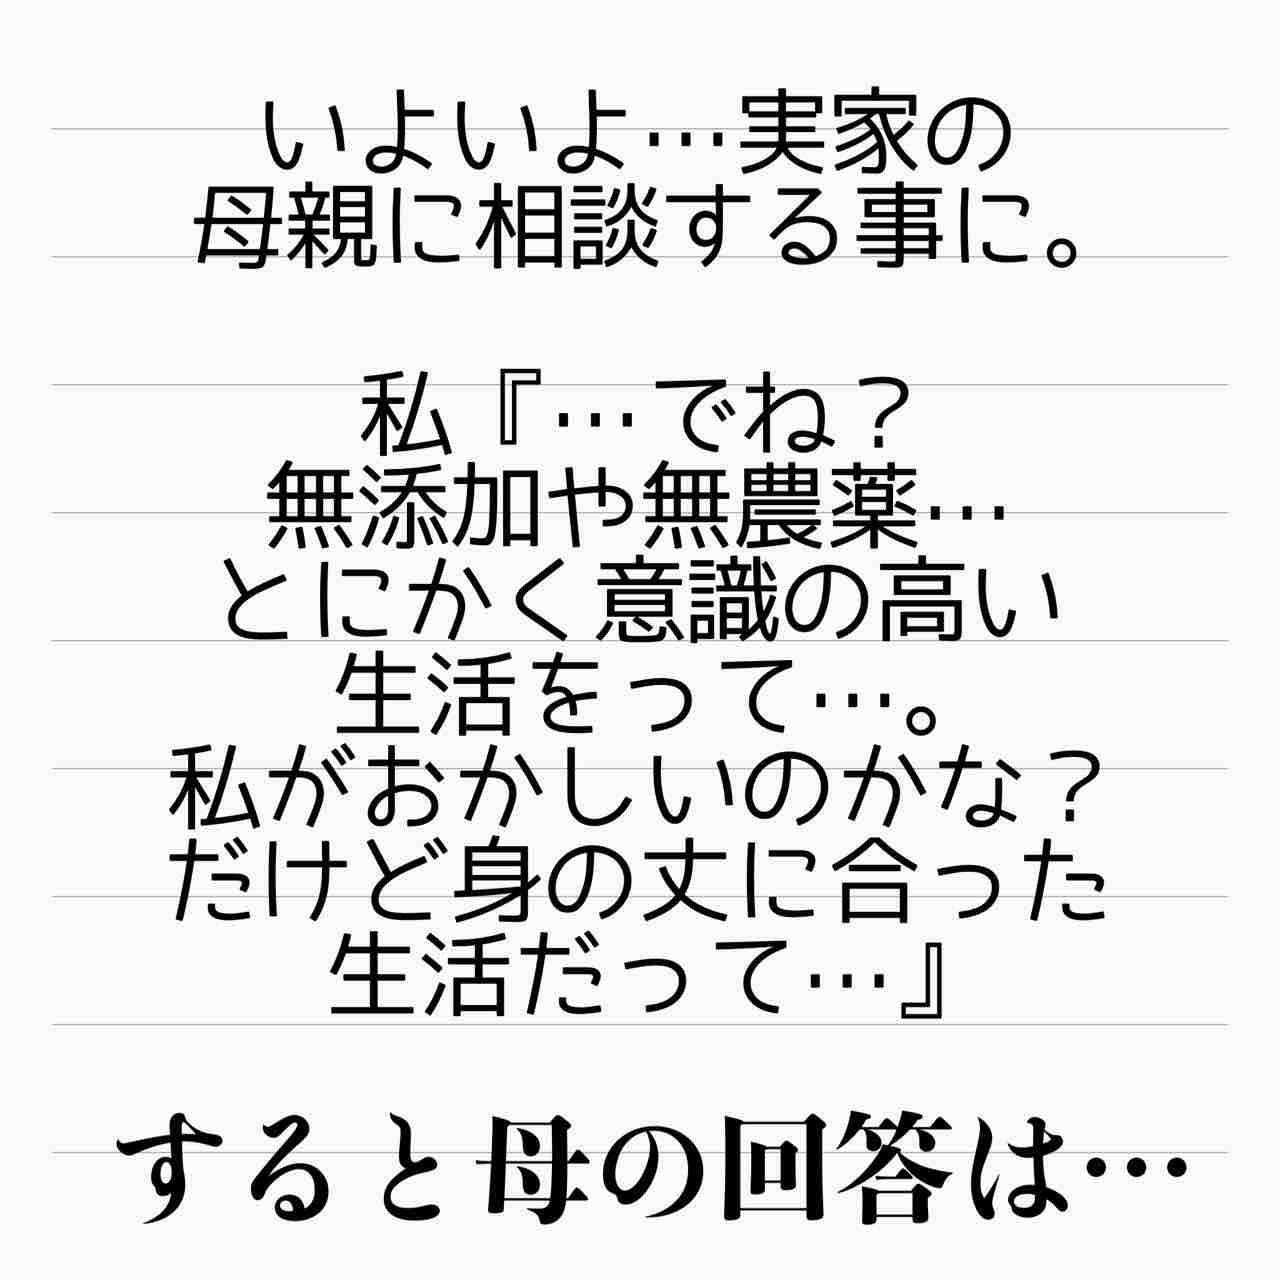 いよいよ…実家の
母親に相談する事に。
私『…でね？
無添加や無農薬…
とにかく意識の高い
生活をって…。
私がおかしいのかな？
だけど身の丈に合った
生活だって…』
すると母の回答は…